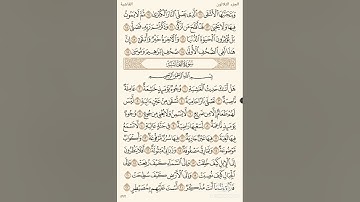 الجزء الثلاثون الغاشية
وَيَتَجَنَّبُهَا ٱلۡأَشۡقَى ١١ ٱلَّذِي يَصۡلَى ٱلنَّارَ ٱلۡكُبۡرَىٰ ١٢ ثُمَّ لَا يَمُوتُ
فِيهَا وَلَا يَحۡيَىٰ ١٣ قَدۡ أَفۡلَحَ مَن تَزَكَّىٰ ١٤ وَذَكَرَ ٱسۡمَ رَبِّهِۦ فَصَلَّىٰ ١٥
بَلۡ تُؤۡثِرُونَ ٱلۡحَيَوٰةَ ٱلدُّنۡيَا ١٦ وَٱلۡأٓخِرَةُ خَيۡرٞ وَأَبۡقَىٰٓ ١٧ إِنَّ
هَٰذَا لَفِي ٱلصُّحُفِ ٱلۡأُولَىٰ ١٨ صُحُفِ إِبۡرَٰهِيمَ وَمُوسَىٰ ١٩
سُورَةُ الغَاشِيَةِ
بِسۡمِ ٱللَّهِ ٱلرَّحۡمَٰنِ ٱلرَّحِيمِ
هَلۡ أَتَىٰكَ حَدِيثُ ٱلۡغَٰشِيَةِ ١ وُجُوهٞ يَوۡمَئِذٍ خَٰشِعَةٌ ٢ عَامِلَةٞ
نَّاصِبَةٞ ٣ تَصۡلَىٰ نَارًا حَامِيَةٗ ٤ تُسۡقَىٰ مِنۡ عَيۡنٍ ءَانِيَةٖ ٥ لَّيۡسَ
لَهُمۡ طَعَامٌ إِلَّا مِن ضَرِيعٖ ٦ لَّا يُسۡمِنُ وَلَا يُغۡنِي مِن جُوعٖ ٧ وُجُوهٞ
يَوۡمَئِذٖ نَّاعِمَةٞ ٨ لِّسَعۡيِهَا رَاضِيَةٞ ٩ فِي جَنَّةٍ عَالِيَةٖ ١٠ لَّا تَسۡمَعُ
فِيهَا لَٰغِيَةٗ ١١ فِيهَا عَيۡنٞ جَارِيَةٞ ١٢ فِيهَا سُرُرٞ مَّرۡفُوعَةٞ ١٣ وَأَكۡوَابٞ
مَّوۡضُوعَةٞ ١٤ وَنَمَارِقُ مَصۡفُوفَةٞ ١٥ وَزَرَابِيُّ مَبۡثُوثَةٌ ١٦ أَفَلَا يَنظُرُونَ
إِلَى ٱلۡإِبِلِ كَيۡفَ خُلِقَتۡ ١٧ وَإِلَى ٱلسَّمَآءِ كَيۡفَ رُفِعَتۡ ١٨ وَإِلَى
ٱلۡجِبَالِ كَيۡفَ نُصِبَتۡ ١٩ وَإِلَى ٱلۡأَرۡضِ كَيۡفَ سُطِحَتۡ ٢٠
فَذَكِّرۡ إِنَّمَآ أَنتَ مُذَكِّرٞ ٢١ لَّسۡتَ عَلَيۡهِم بِمُصَيۡطِرٍ ٢٢